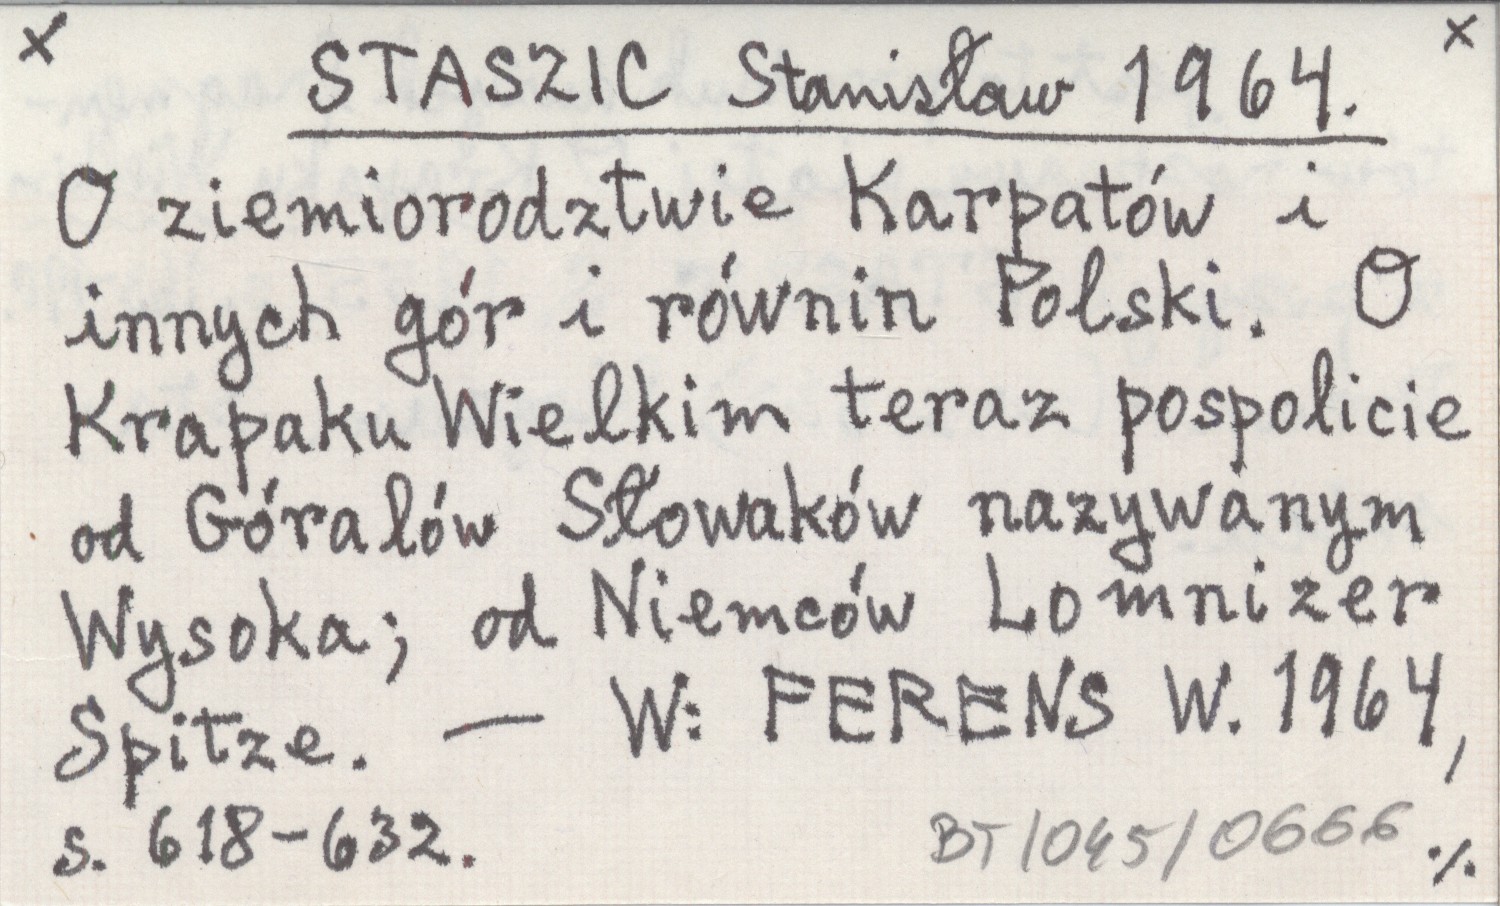 x STASZIC Stanisław 1964. x
O ziemiorodztwie Karpatów i
innych gór i równin Polski. O
Krapaku Wielkim teraz pospolicie
od Góralów Słowaków nazywanym
Wysoka; od Niemców Lomnizer
Spitze. — W: FERENS W. 1964,
s. 618-632.
BT/045/0666 ./.